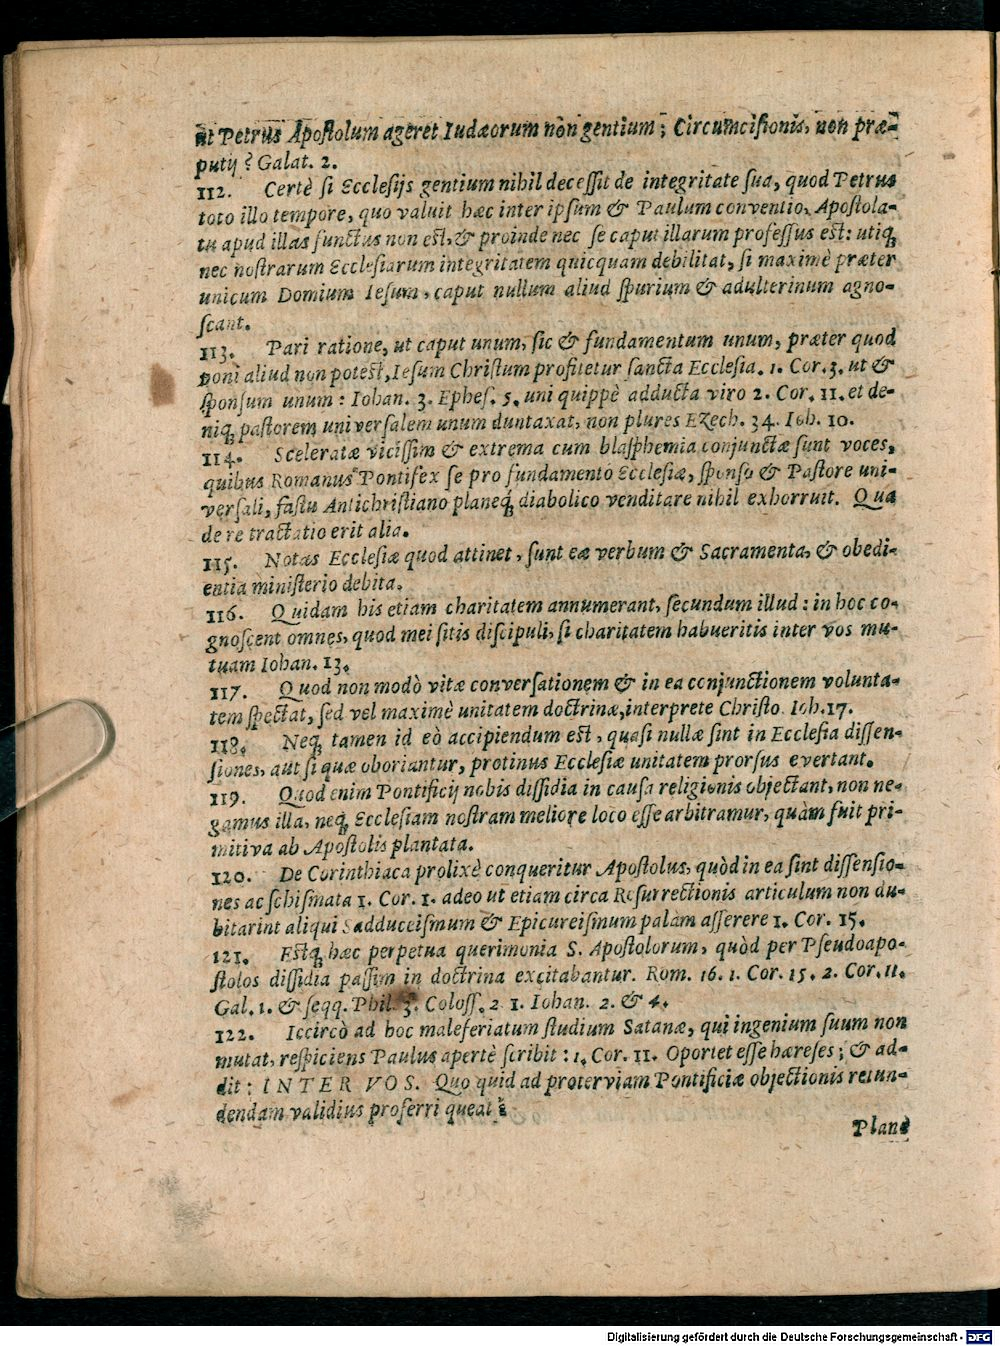 ut Petrus Apostolum ageret Iudæorum non gentium; Circumcisionis, non præ-
putij? Galat. 2.
112. Certè si Ecclesijs gentium nihil decessit de integritate sua, quod Petrus
toto illo tempore, quo valuit hæc inter ipsum & Paulum conventio, Apostola-
tu apud illas functus non est, & proinde nec se caput illarum professus est: utiq;
nec nostrarum Ecclesiarum integritatem quicquam debilitat, si maximè præter
unicum Domium Iesum, caput nullum aliud spurium & adulterinum agno-
scant.
113. Pari ratione, ut caput unum, sic & fundamentum unum, præter quod
poni aliud non potest, Iesum Christum profitetur sancta Ecclesia. 1. Cor. 3. ut &
sponsum unum: Iohan. 3. Ephes. 5. uni quippè adducta viro 2. Cor. 11. et de-
niq; pastorem universalem unum duntaxat, non plures Ezech. 34. Ioh. 10.
114. Sceleratæ vicissim & extrema cum blasphemia conjunctæ sunt voces,
quibus Romanus Pontifex se pro fundamento Ecclesiæ, sponso & Pastore uni-
versali, fastu Antichristiano planeq; diabolico venditare nihil exhorruit. Qua
de re tractatio erit alia.
115. Notas Ecclesiæ quod attinet, sunt eæ verbum & Sacramenta, & obedi-
entia ministerio debita.
116. Quidam his etiam charitatem annumerant, secundum illud: in hoc co-
gnoscent omnes, quod mei sitis discipuli, si charitatem habueritis inter vos mu-
tuam Iohan. 13.
117. Quod non modò vitæ conversationem & in ea conjunctionem volunta-
tem spectat, sed vel maximè unitatem doctrinæ, interprete Christo Ioh. 17.
118. Neq; tamen id eò accipiendum est, quasi nullæ sint in Ecclesia dissen-
siones, aut si quæ oboriantur, protinus Ecclesiæ unitatem prorsus evertant.
119. Quod enim Pontificij nobis dissidia in causa religionis objectant, non ne-
gamus illa, neq; Ecclesiam nostram meliore loco esse arbitramur, quàm fuit pri-
mitiva ab Apostolis plantata.
120. De Corinthiaca prolixè conqueritur Apostolus, quòd in ea sint dissensio-
nes ac schismata 1. Cor. 1. adeo ut etiam circa Resurrectionis articulum non du-
bitarint aliqui Sadduceismum & Epicureismum palàm asserere 1. Cor. 15.
121. Estq; hæc perpetua querimonia S. Apostolorum, quòd per Pseudoapo-
stolos dissidia passim in doctrina excitabantur. Rom. 16. 1. Cor. 15. 2. Cor. 11.
Gal. 1. & seqq. Phil. 3. Coloss. 2 1. Iohan. 2. & 4.
122. Iccircò ad hoc maleferiatum studium Satanæ, qui ingenium suum non
mutat, respiciens Paulus apertè scribit: 1. Cor. 11. Oportet esse hæreses; & ad-
dit: INTER VOS. Quo quid ad proterviam Pontificiæ objectionis retun-
dendam validius proferri queat?
Planè
Digitalisierung gefördert durch die Deutsche Forschungsgemeinschaft - DFG